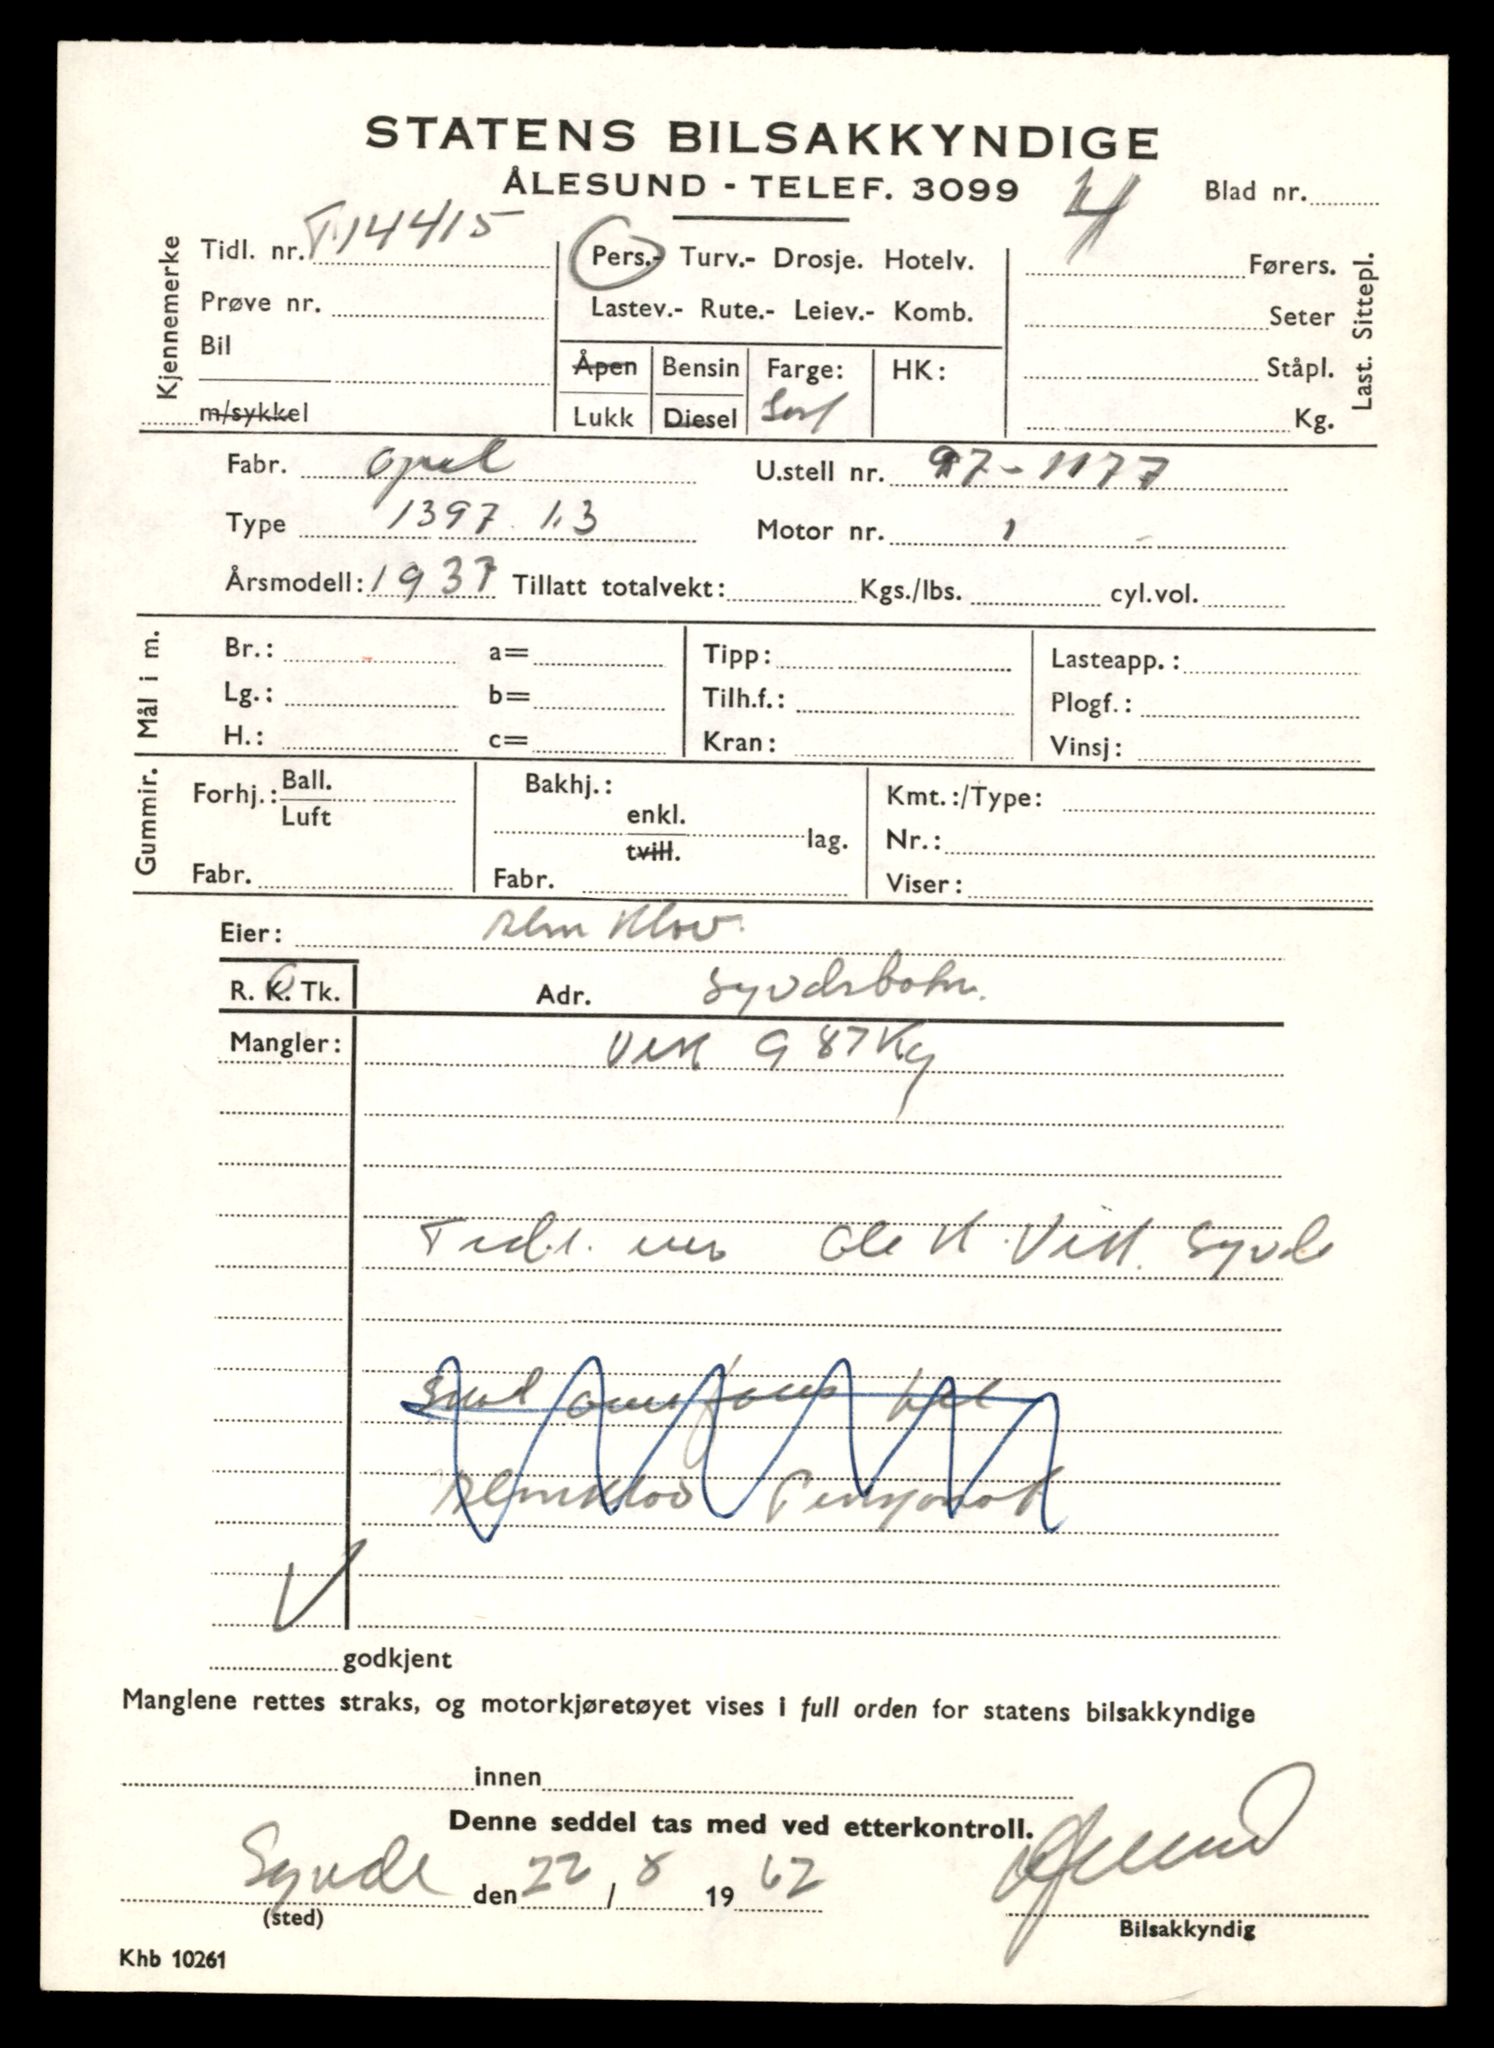 STATENS BILSAKKYNDIGE
ÅLESUND - TELEF. 3099
Blad nr.
Kjennemerke
Tidl. nr. T14415
Prøve nr.
Bil
m/sykkel
Pers.- Turv.- Drosje. Hotelv.
Lastev.- Rute.- Leiev.- Komb.
Åpen
Lukk
Bensin
Diesel
Farge: Sort
HK:
4 Førers.
Seter
Ståpl.
Kg.
Last. Sittepl.
Fabr. Opel U.stell nr. 97-1177
Type 1397 1.3 Motor nr. 1
Årsmodell: 1937 Tillatt totalvekt: Kgs./lbs. cyl.vol.
Mål i m.
Br.: a= Tipp: Lasteapp.:
Lg.: b= Tilh.f.: Plogf.:
H.: c= Kran: Vinsj:
Gummir.
Forhj.: Ball.
Luft
Fabr.
Bakhj.:
enkl.
tvill.
lag.
Fabr.
Kmt.:/Type:
Nr.:
Viser:
Eier: Almklov
R. K. Tk. Adr. Syvdsbotn.
Mangler: Vekt 987 Kg
Tidl. Ole K. Vik. Syvde
Almklov
godkjent
Manglene rettes straks, og motorkjøretøyet vises i full orden for statens bilsakkyndige
innen
Denne seddel tas med ved etterkontroll.
Syvde den 22 / 8 19 62
(sted)
Bilsakkyndig
Khb 10261